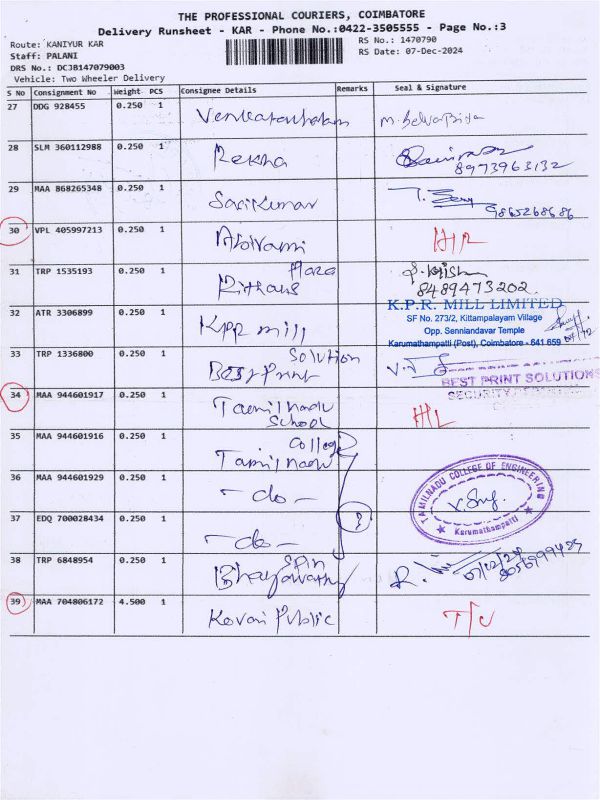 THE PROFESSIONAL COURIERS, COIMBATORE
Delivery Runsheet - KAR - Phone No.:0422-3505555 - Page No.:3
Route: KANIYUR KAR
RS No.: 1470790
Staff: PALANI
RS Date: 07-Dec-2024
DRS No.: DCJB147079003
Vehicle: Two Wheeler Delivery
S No Consignment No Weight PCS Consignee Details Remarks Seal & Signature
27 DDG 928455 0.250 1
28 SLM 360112988 0.250 1 Rekha
8973963132
29 MAA 868265348 0.250 1 Sasikumar
30 VPL 405997213 0.250 1 Abirami
31 TRP 1535193 0.250 1 Plaza
8489473202
32 ATR 3306899 0.250 1 KPR mill
K.P.R. MILL LIMITED
SF No. 273/2, Kittampalayam Village
Opp. Senniandavar Temple
Karumathampatti (Post), Coimbatore - 641 659
33 TRP 1336800 0.250 1 Solution
Best Print
BEST PRINT SOLUTIONS
SECURITY
34 MAA 944601917 0.250 1 Tamilnadu
School
35 MAA 944601916 0.250 1 College
Tamilnadu
36 MAA 944601929 0.250 1 - do -
37 EDQ 700028434 0.250 1 - do -
3
TAMILNADU COLLEGE OF ENGINEERING
Karumathampatti
38 TRP 6848954 0.250 1 Spin
Bhagawathy
39 MAA 704806172 4.500 1 Kovai Public